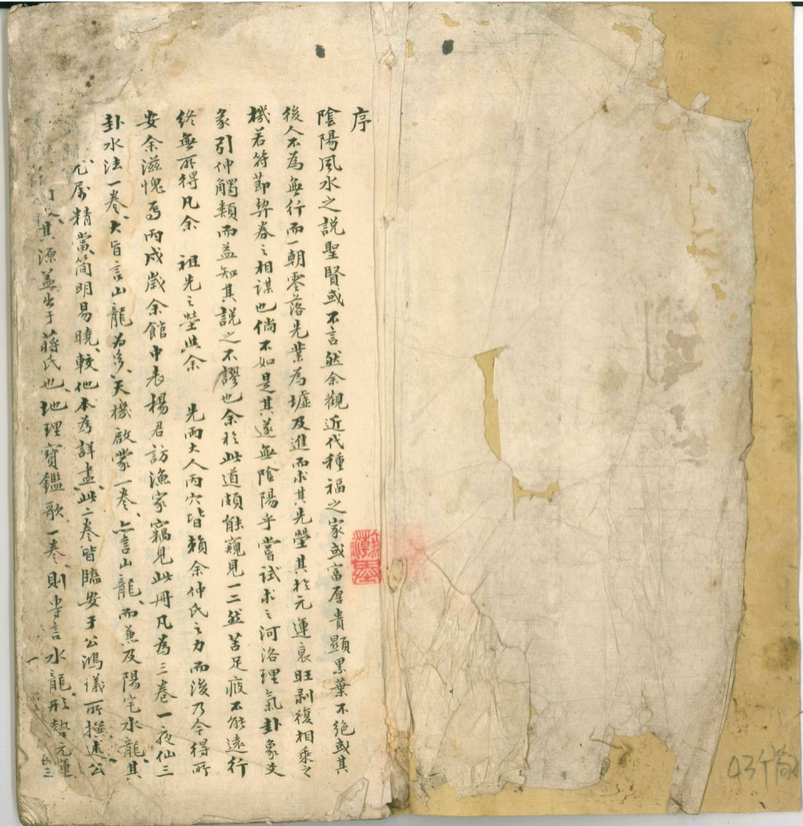 序
陰陽風水之說聖賢或不言然余觀近代種福之家或富厚貴顯累葉不絕或其
後人不為無行而一朝零落先業為墟及進而求其先塋其於元運衰旺剥復相乘之
機若符節契券之相謀也倘不如是其遂無陰陽乎嘗試求之河洛理氣卦象爻
彖引伸觸類而益知其說之不謬也余於此道頗能窺見一二然苦足疲不能遠行
終無所得凡余 祖先之塋與余 先兩大人兩穴皆賴余仲氏之力而後乃今得所
安余滋愧焉丙戌歲余館中表楊君訪漁家竊見此冊凡為三卷一夜仙三
卦水法一卷大旨言山龍為多天機啟蒙一卷亦言山龍而兼及陽宅水龍其
尤屬精當簡明易曉較他本為詳盡此二卷皆臨安于公鴻儀所撰述公
其源蓋出于蔣氏也地理寶鑑歌一卷則专言水龍形勢元運
一
43个筒